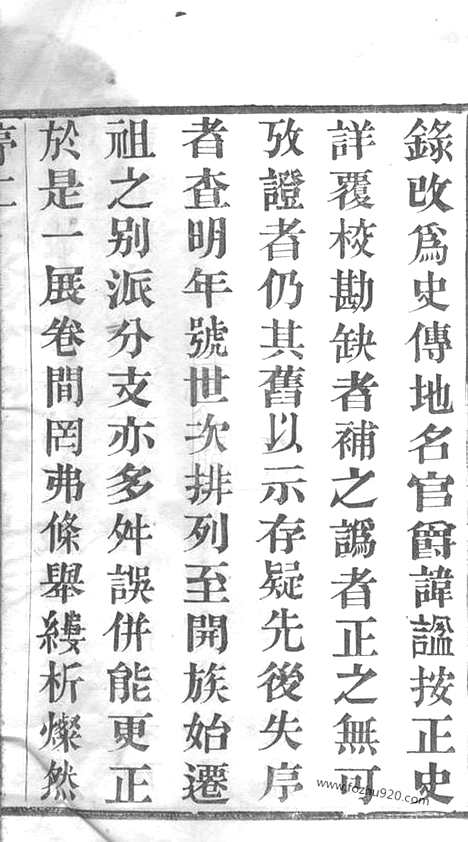 錄改爲史傳地名官爵諱謚按正史
詳覆校勘缺者補之譌者正之無可
攷證者仍其舊以示存疑先後失序
者查明年號世次排列至開族始遷
祖之别派分支亦多舛誤併能更正
於是一展卷間罔弗條舉縷析燦然
www.fozhu920.com